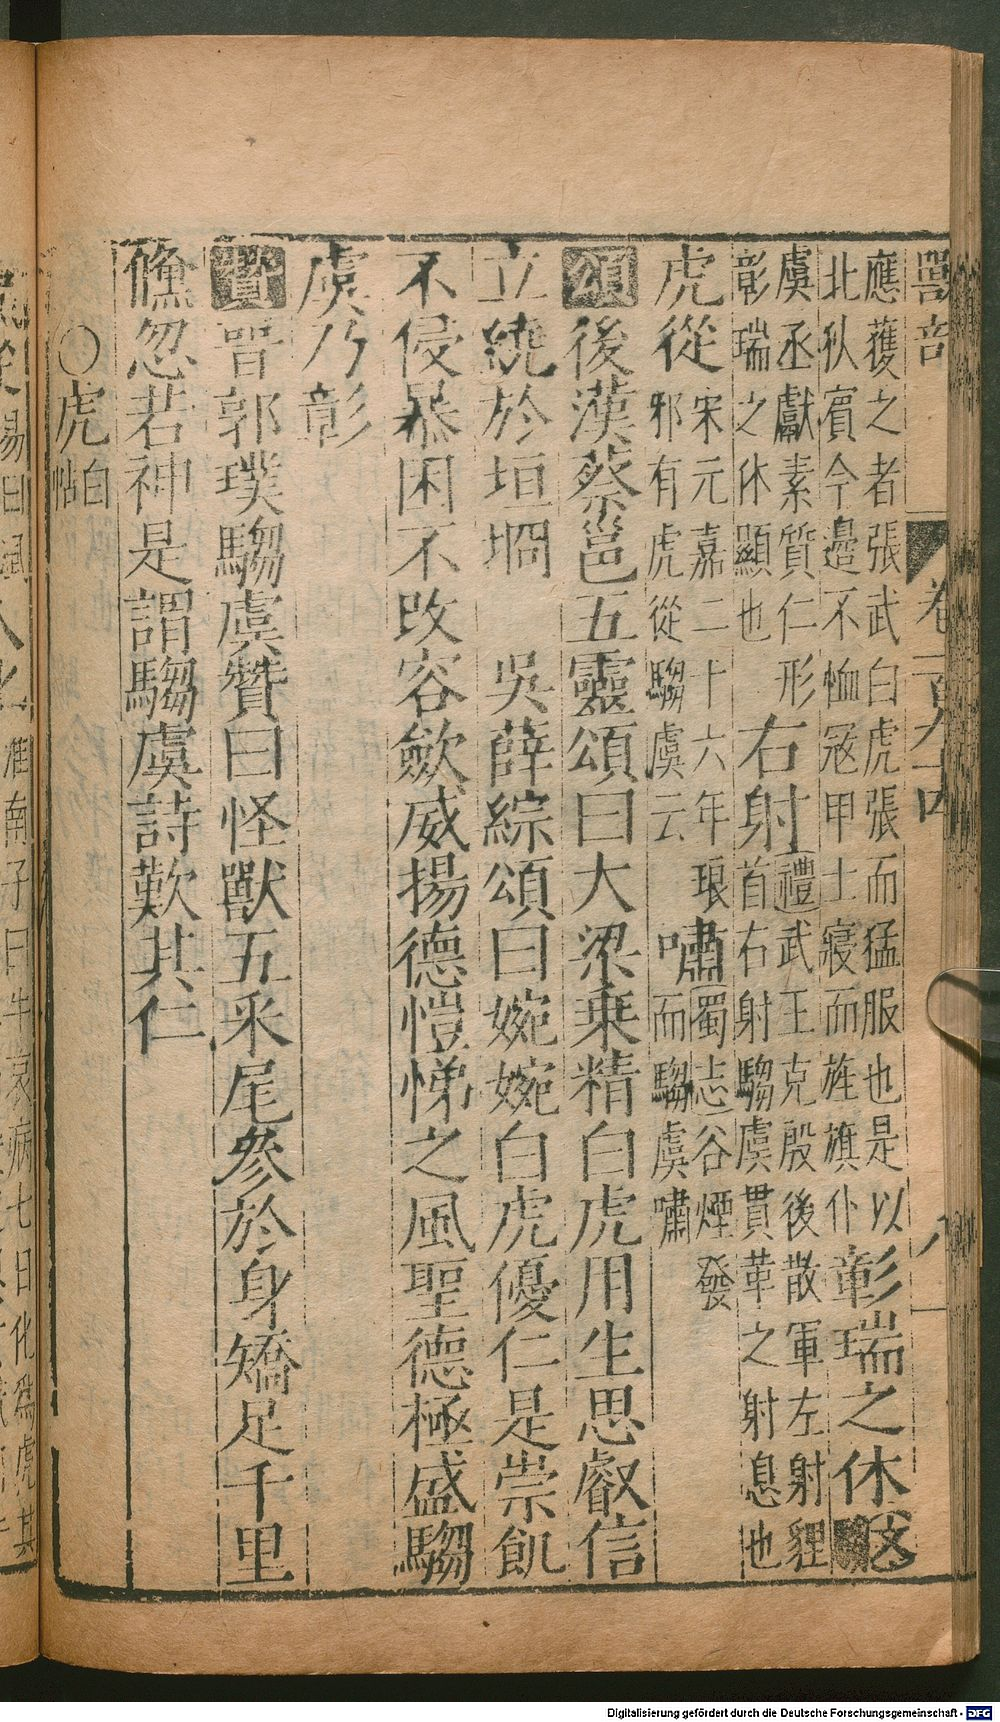 獸部 卷一百九十四 八
應獲之者張武白虎張而猛服也是以
北狄賓今邊不恤寇甲士寢而旌旗仆
彰瑞之休
虞丞獻素質仁形
彰瑞之休顯也
右射
禮武王克殷後散軍左射貍
首右射騶虞貫革之射息也
虎從
宋元嘉二十六年琅
邪有虎從騶虞云
嘯
蜀志谷煙發
而騶虞嘯
頌後漢蔡邕五靈頌曰大梁乗精白虎用生思叡信
立繞於垣坰 吳薛綜頌曰婉婉白虎優仁是崇飢
不侵暴困不改容歛威揚德愷悌之風聖德極盛騶
虞乃彰
贊晉郭璞騶虞贊曰怪獸五采尾參於身矯足千里
儵忽若神是謂騶虞詩歎其仁
○虎白
帖
淮南子曰牛哀病七日化爲虎其
Digitalisierung gefördert durch die Deutsche Forschungsgemeinschaft - DFG